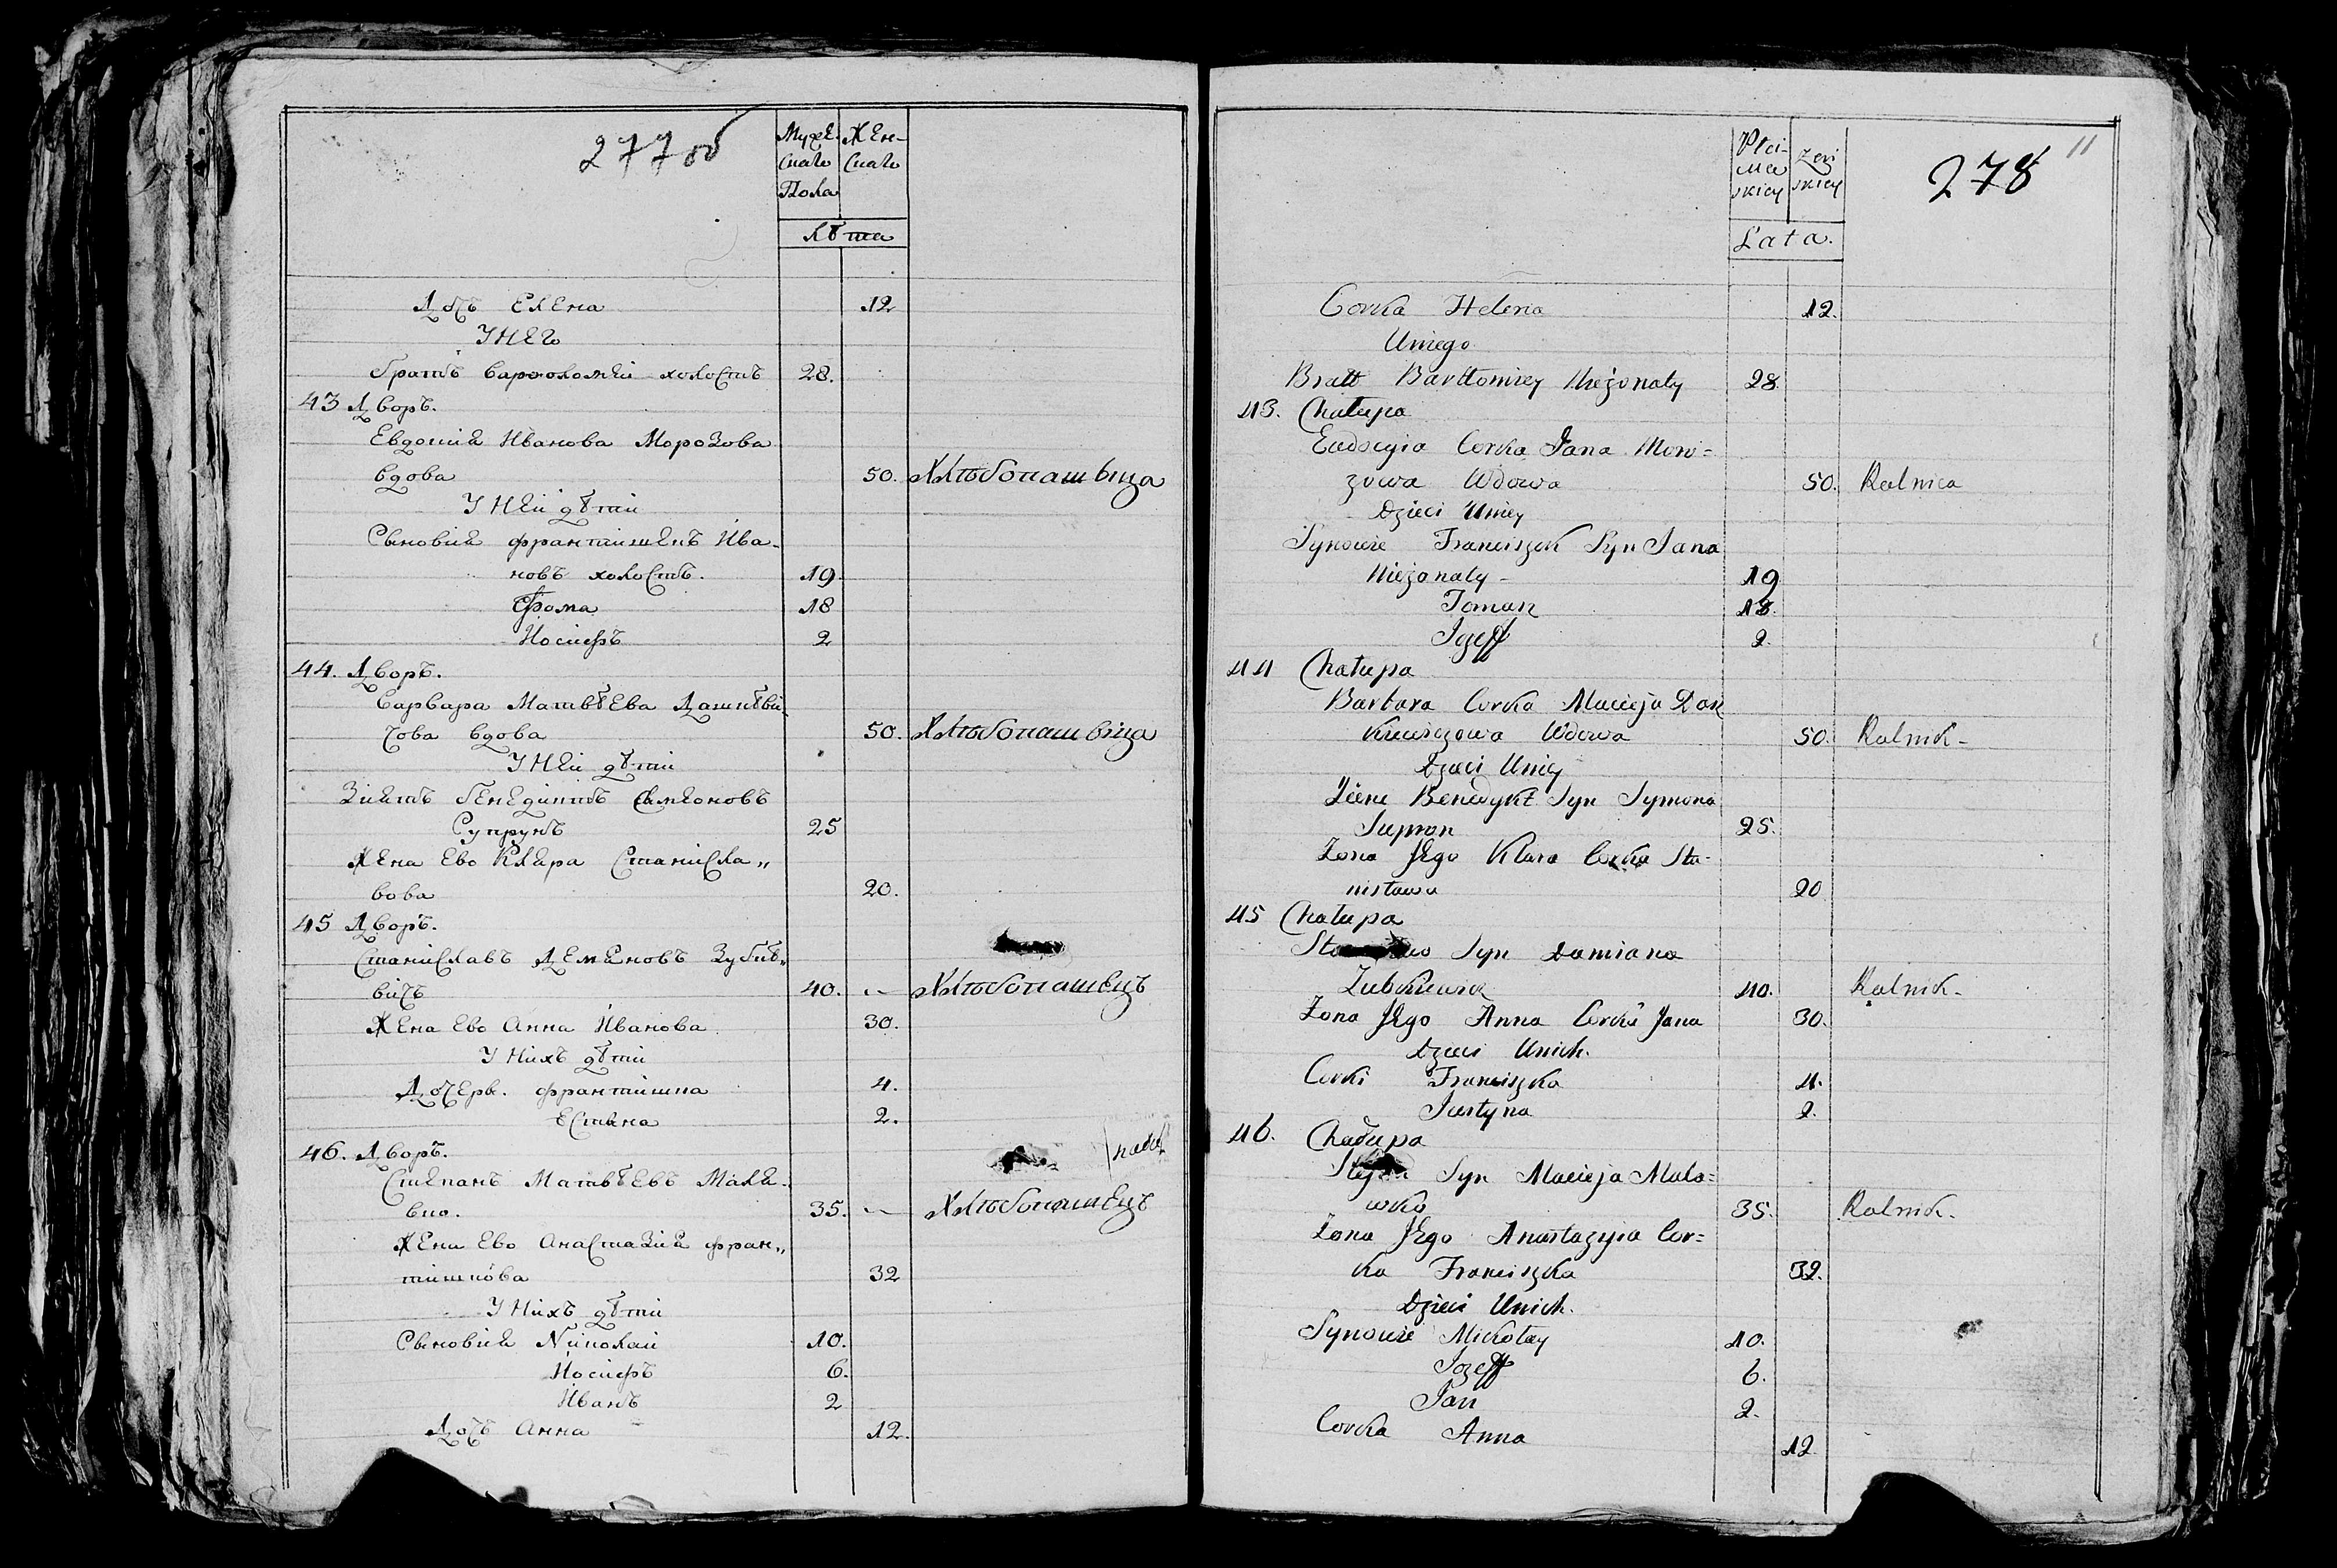 277 об
Мужес-
каго
Пола
Жен-
скаго
Лѣта
Дочь Елена 12
У него
братъ Варфоломей холостъ 28.
43 Дворъ.
Евдокия Иванова Морозова
вдова 50. Хлѣбопашвица
У ней дѣти
Сыновия франтишекъ Ива-
новъ холостъ. 19.
Фома 18
Иосифъ 2
44. Дворъ.
Варвара Матвѣева Дашкѣви-
чова вдова 50. Хлѣбопашвица
У ней дѣти
Зиять бенедиктъ Симоновъ
Супрунъ 25
Жена Ево Кляра Станисла„
вова 20.
45 Дворъ.
Станиславъ Демяновъ Зубкѣ„
вичъ 40. Хлѣбопашецъ
Жена Ево Анна Иванова 30.
У нихъ дѣти
Дочери. франтишка 4.
2.
46. Дворъ.
Степанъ Матвѣевъ Маля-
вко. 35. Хлѣбопашецъ
Жена Ево Анастазия фран„
тишкова 32
У нихъ дѣти
Сыновия Николай 10.
Иосифъ 6.
Иванъ 2
Дочь Анна 12.
278
11
Płci
Męs
skiey
Żeń
skiey
Lata.
Corka Helena 12.
Uniego
Bratt Barttomiey Nieżonaty 28
43. Chałupa
Eudocyia Corka Jana Moro=
zowa Wdowa 50. Rolnica
Dzieci Uniey
Synowie Franciszek Syn Jana
Nieżonaty - 19
Toman 18.
Jozeff 2.
44 Chałupa
Barbara Corka Macieja Dasz
kiewiczowa Wdowa 50. Rolnik-
Dzieci Uniey
Zienc Benedykt Syn Symona
Supron 25.
Zona Jego Klara Corka Sta-
nisława 20
45 Chałupa
Syn Damiana
Zubkiewicz 40. Rolnik-
Zona Jego Anna Corka Jana 30.
Dzieci Unich.
Corki Franciszka 4.
Justyna 2.
46. Chałupa
Stefan Syn Macieja Mala=
wko 35. Rolnik-
Zona Jego Anastazyia Cor=
ka Franciszka 32.
Dzieci Unich.
Synowie Mikołay 10.
Jozeff 6.
Jan 2.
Corka Anna 12